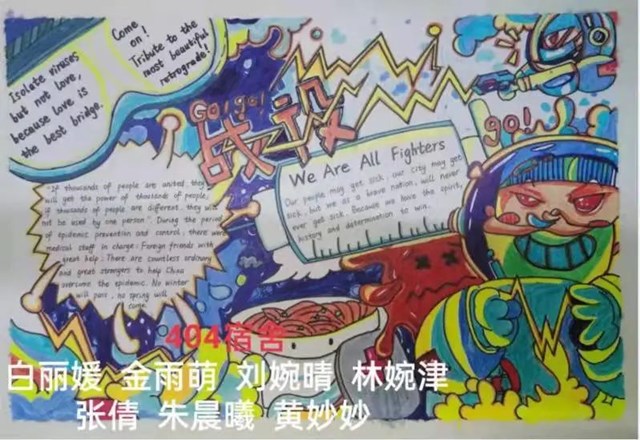 Come
on!
Tribute to the
most beautiful
retrograde!
Isolate viruses
but not love,
because love is
the best bridge.
Go! go!
战疫
go!
We Are All Fighters
Our people may get sick, our city may get
sick, but we as a brave nation, will never
ever get sick. Because we have the spirit,
history and determination to win.
"If thousands of people are united, they
will get the power of thousands of people,
if thousands of people are different, they will
not be used by one person". During the period
of epidemic prevention and control, there were
medical staff in charge; Foreign friends with
great help; There are countless ordinary
and great strangers to help China
overcome the epidemic. No winter
will pass, no spring will
come.
404宿舍
白丽媛 金雨萌 刘婉晴 林婉津
张倩 朱晨曦 黄妙妙